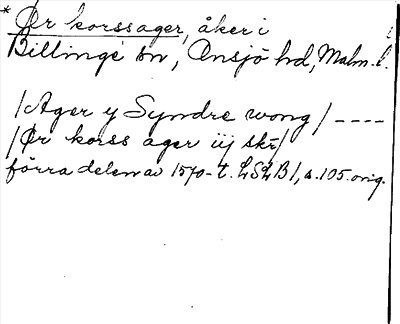 * Ør korssager, åker i
Billinge sn, Onsjö hd, Malm. l.
/Ager y Syndre wong/ ----
/Ør korss ager iij skr/
förra delen av 1570-t. LSLB 1, s. 105. orig.